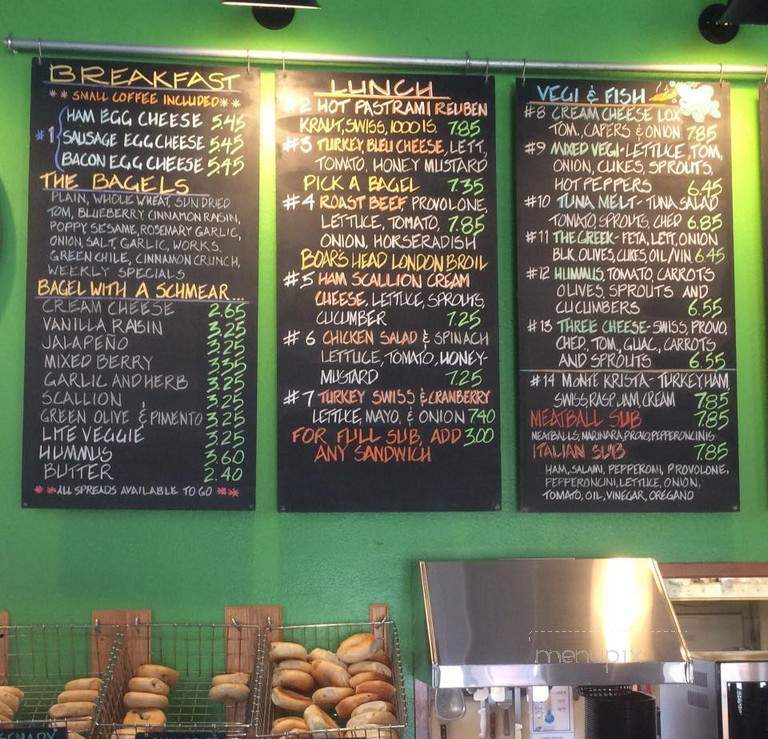 BREAKFAST
** SMALL COFFEE INCLUDED **
HAM EGG CHEESE 5.45
#1 SAUSAGE EGG CHEESE 5.45
BACON EGG CHEESE 5.45
THE BAGELS
PLAIN, WHOLE WHEAT, SUN DRIED
TOM, BLUEBERRY CINNAMON RAISIN,
POPPY SESAME, ROSEMARY GARLIC,
ONION, SALT, GARLIC, WORKS,
GREEN CHILE, CINNAMON CRUNCH,
WEEKLY SPECIALS
BAGEL WITH A SCHMEAR...
CREAM CHEESE 2.65
VANILLA RAISIN 3.25
JALAPEÑO 3.25
MIXED BERRY 3.35
GARLIC AND HERB 3.25
SCALLION 3.25
GREEN OLIVE & PIMENTO 3.25
LITE VEGGIE 3.25
HUMMUS 3.60
BUTTER 2.40
** ALL SPREADS AVAILABLE TO GO **
LUNCH
#2 HOT PASTRAMI REUBEN
KRAUT, SWISS, 1000 IS. 7.85
#3 TURKEY, BLEU CHEESE, LETT,
TOMATO, HONEY MUSTARD
PICK A BAGEL 7.35
#4 ROAST BEEF PROVOLONE,
LETTUCE, TOMATO, 7.85
ONION, HORSERADISH
BOARS HEAD LONDON BROIL
#5 HAM SCALLION CREAM
CHEESE, LETTUCE, SPROUTS,
CUCUMBER 7.25
#6 CHICKEN SALAD & SPINACH
LETTUCE, TOMATO, HONEY-
MUSTARD 7.25
#7 TURKEY SWISS & CRANBERRY
LETTUCE, MAYO, & ONION 7.40
FOR FULL SUB, ADD 3.00
ANY SANDWICH
VEGI & FISH
#8 CREAM CHEESE LOX
TOM, CAPERS & ONION 7.85
#9 MIXED VEGI - LETTUCE, TOM,
ONION, CUKES, SPROUTS,
HOT PEPPERS 6.45
#10 TUNA MELT - TUNA SALAD
TOMATO, SPROUTS, CHED 6.85
#11 THE GREEK - FETA, LETT, ONION
BLK. OLIVES, CUKES, OIL/VIN 6.45
#12 HUMMUS, TOMATO, CARROTS
OLIVES, SPROUTS AND
CUCUMBERS 6.55
#13 THREE CHEESE - SWISS, PROVO,
CHED, TOM, GUAC, CARROTS
AND SPROUTS 6.55
#14 MONTE KRISTA - TURKEY HAM,
SWISS, RASP JAM, CREAM 7.85
MEATBALL SUB 7.85
MEATBALLS, MARINARA, PROVO, PEPPERONCINIS
ITALIAN SUB 7.85
HAM, SALAMI, PEPPERONI, PROVOLONE,
PEPPERONCINI, LETTUCE, ONION,
TOMATO, OIL, VINEGAR, OREGANO
menupix